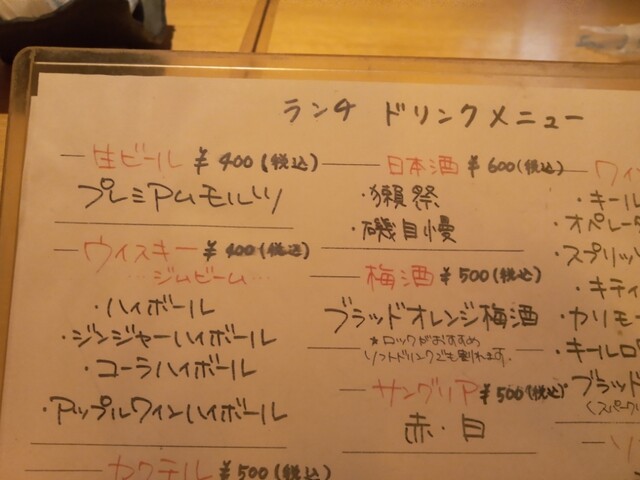 ランチ ドリンクメニュー
生ビール ¥400(税込)
プレミアムモルツ
ウイスキー ¥400(税込)
ジムビーム
・ハイボール
・ジンジャーハイボール
・コーラハイボール
・アップルワインハイボール
カクテル ¥500(税込)
日本酒 ¥600(税込)
・獺祭
・磯自慢
梅酒 ¥500(税込)
ブラッドオレンジ梅酒
*ロックがおすすめ
ソフトドリンクでも割れます。
サングリア ¥500(税込)
赤・白
ワイ
・キール
・オペレー
・スプリッツ
・キティ
・カリモー
・キールロ
・ブラッド
(スパーク